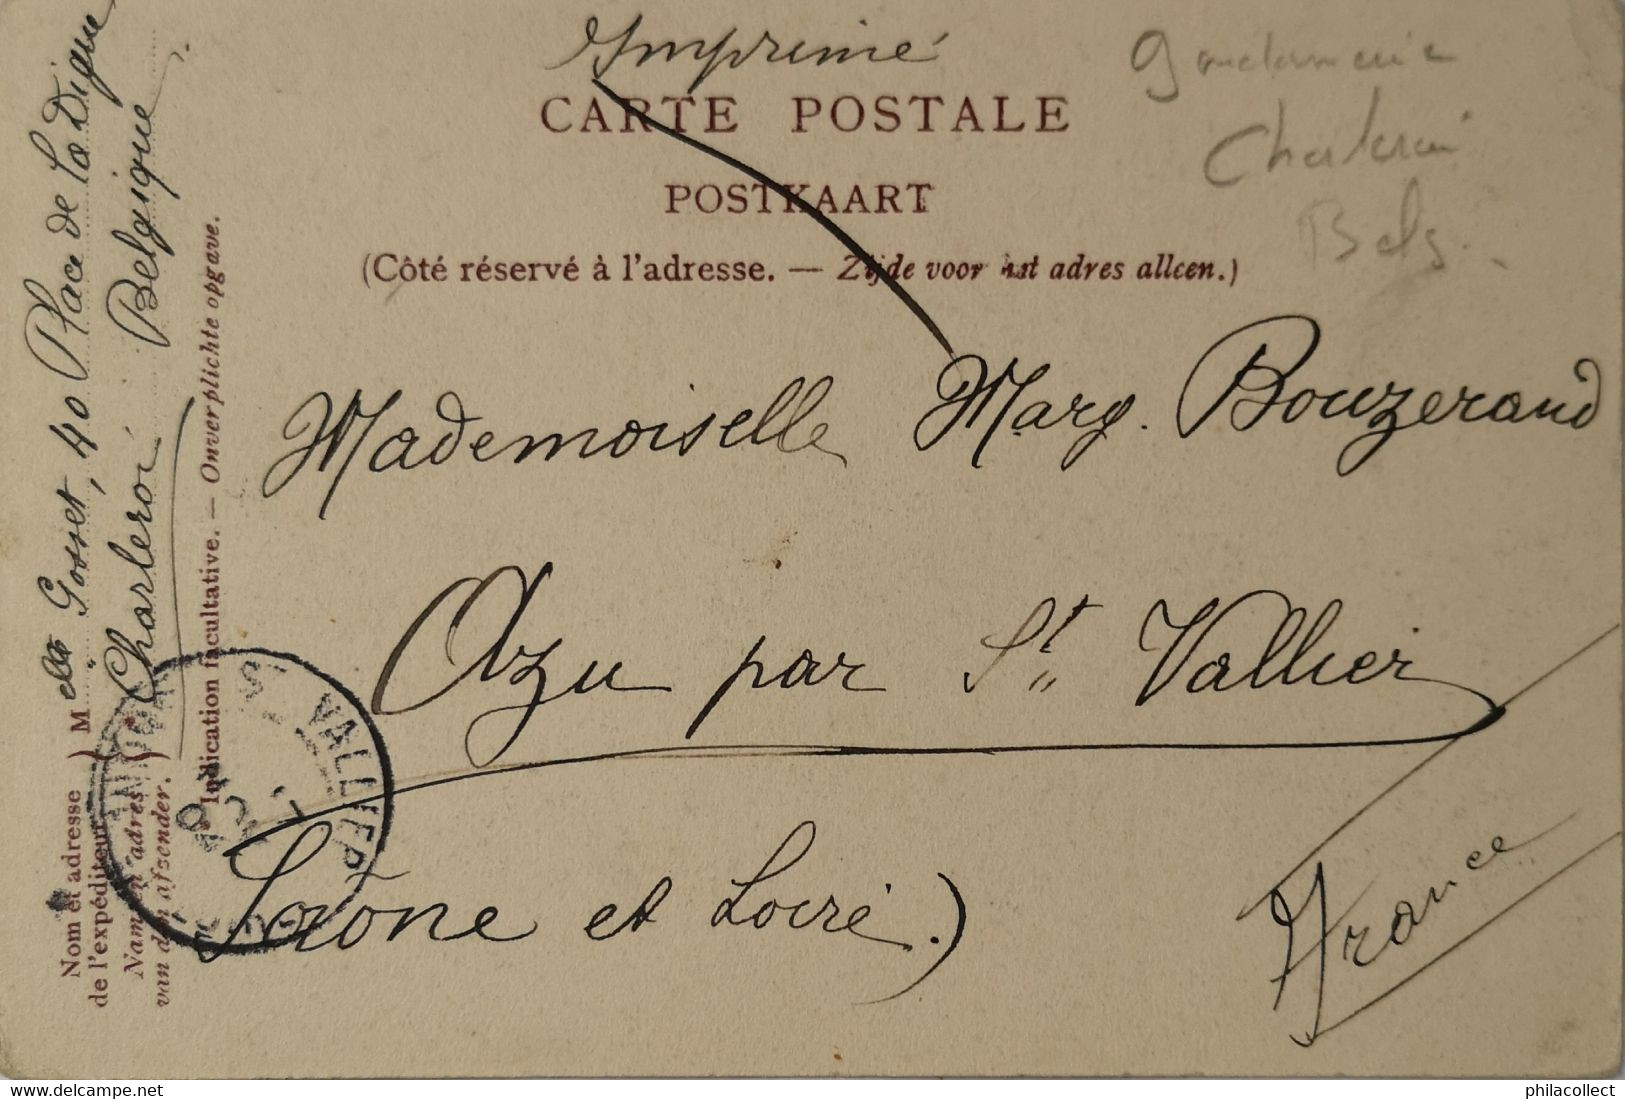 Imprimé
CARTE POSTALE
POSTKAART
(Côté réservé à l'adresse. — Zijde voor het adres alleen.)
Gendarmerie
Charleroi
Belg.
Mademoiselle Marg. Bouzerand
Azu par St. Vallier
Saône et Loire.)
France
Nom et adresse
de l'expéditeur
Naam en adres
van den afzender.
M elle Gosset, 40 Place de la Digue
Charleroi Belgique
Indication facultative. — Onverplichte opgave.
ST VALLIER
philacollect